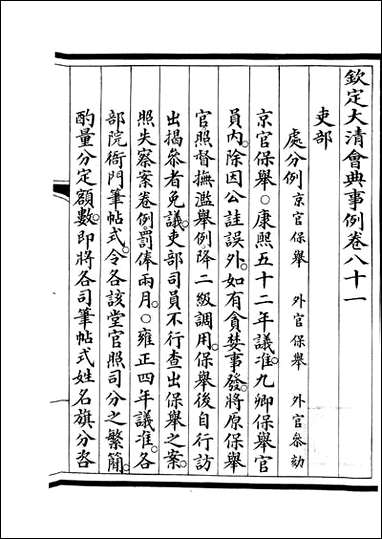 欽定大清會典事例卷八十一
吏部
處分例 京官保舉 外官保舉 外官參劾
京官保舉○康熙五十二年議准九卿保舉官
員內。除因公詿誤外。如有貪婪事發。將原保舉
官照督撫濫舉例降二級調用。保舉後自行訪
出揭參者免議。吏部司員不行查出保舉之案。
照失察案卷例罰俸兩月。○雍正四年議准。各
部院衙門筆帖式。令各該堂官照司分之繁簡。
酌量分定額數。即將各司筆帖式姓名旗分咨